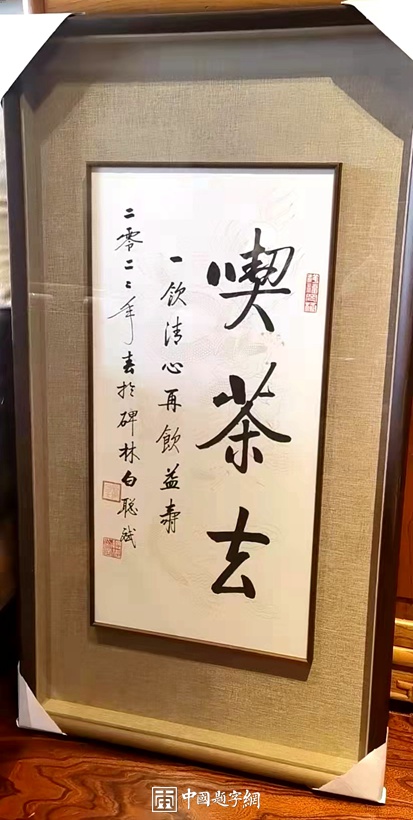 喫茶去
一飲清心再飲益壽
二零二二年春於碑林白聪斌
中國题字網